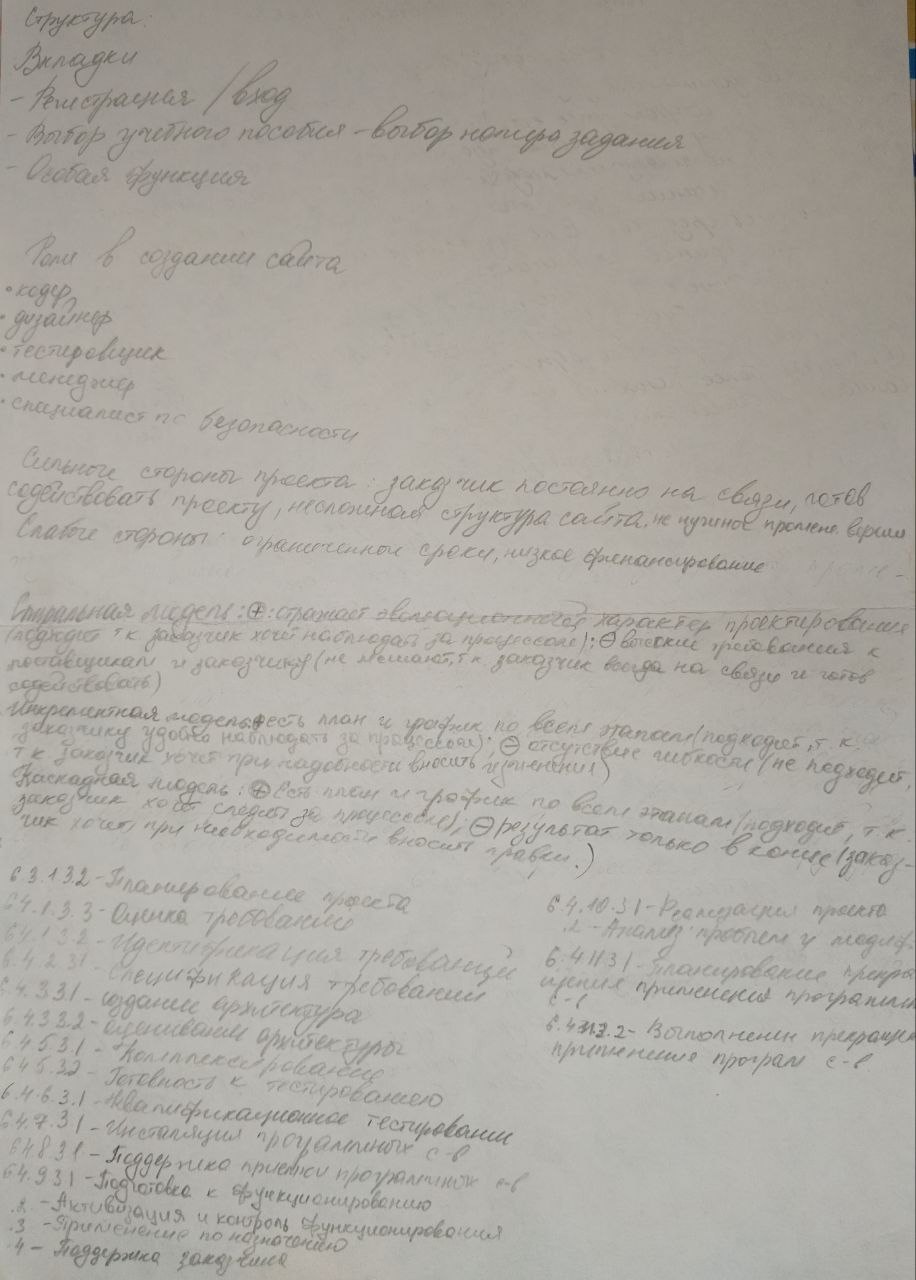 Структура:
Вкладки
- Регистрация / вход
- Выбор учебного пособия - выбор номера задания
- Особая функция
Роли в создании сайта
• кодер
• дизайнер
• тестировщик
• менеджер
• специалист по безопасности
Сильные стороны проекта: заказчик постоянно на связи, готов
содействовать проекту, несложная структура сайта, не нужное промеж. версии
Слабые стороны: ограниченные сроки, низкое финансирование
Спиральная модель: ⊕: отражает эволюционного характер проектирования
(подходит т.к. заказчик хочет наблюдать за процессом); ⊖ высокие требования к
поставщикам и заказчику (не мешают, т.к. заказчик всегда на связи и готов
содействовать)
Инкрементная модель: ⊕ есть план и график по всем этапам (подходит, т.к.
заказчику удобно наблюдать за процессом); ⊖ отсутствие гибкости (не подходит,
т.к заказчик хочет при надобности вносить изменения)
Каскадная модель: ⊕ есть план и график по всем этапам (подходит, т.к.
заказчик хочет следить за процессом); ⊖ результат только в конце (заказ-
чик хочет, при необходимости вносить правки.)
6.3.1.3.2 - Планирование проекта
6.4.1.3.3 - Оценка требований
6.4.1.3.2 - Идентификация требований
6.4.2.3.1 - Спецификация требований
6.4.3.3.1 - создание архитектуры
6.4.3.3.2 - оценивание архитектуры
6.4.5.3.1 - Комплексирование
6.4.5.3.2 - Готовность к тестированию
6.4.6.3.1 - Квалификационное тестирование
6.4.7.3.1 - Инсталяция программных с-в
6.4.8.3.1 - Поддержка приемки программных с-в
6.4.9.3.1 - Подготовка к функционированию
.2 - Активизация и контроль функционирования
.3 - Применение по назначению
.4 - Поддержка заказчика
6.4.10.3.1 - Реализация проекта
.2 - Анализ проблем и модиф
6.4.11.3.1 - Планирование прекра
щения применения программн
с-в
6.4.11.3.2 - Выполнении прекращен
применения програм с-в